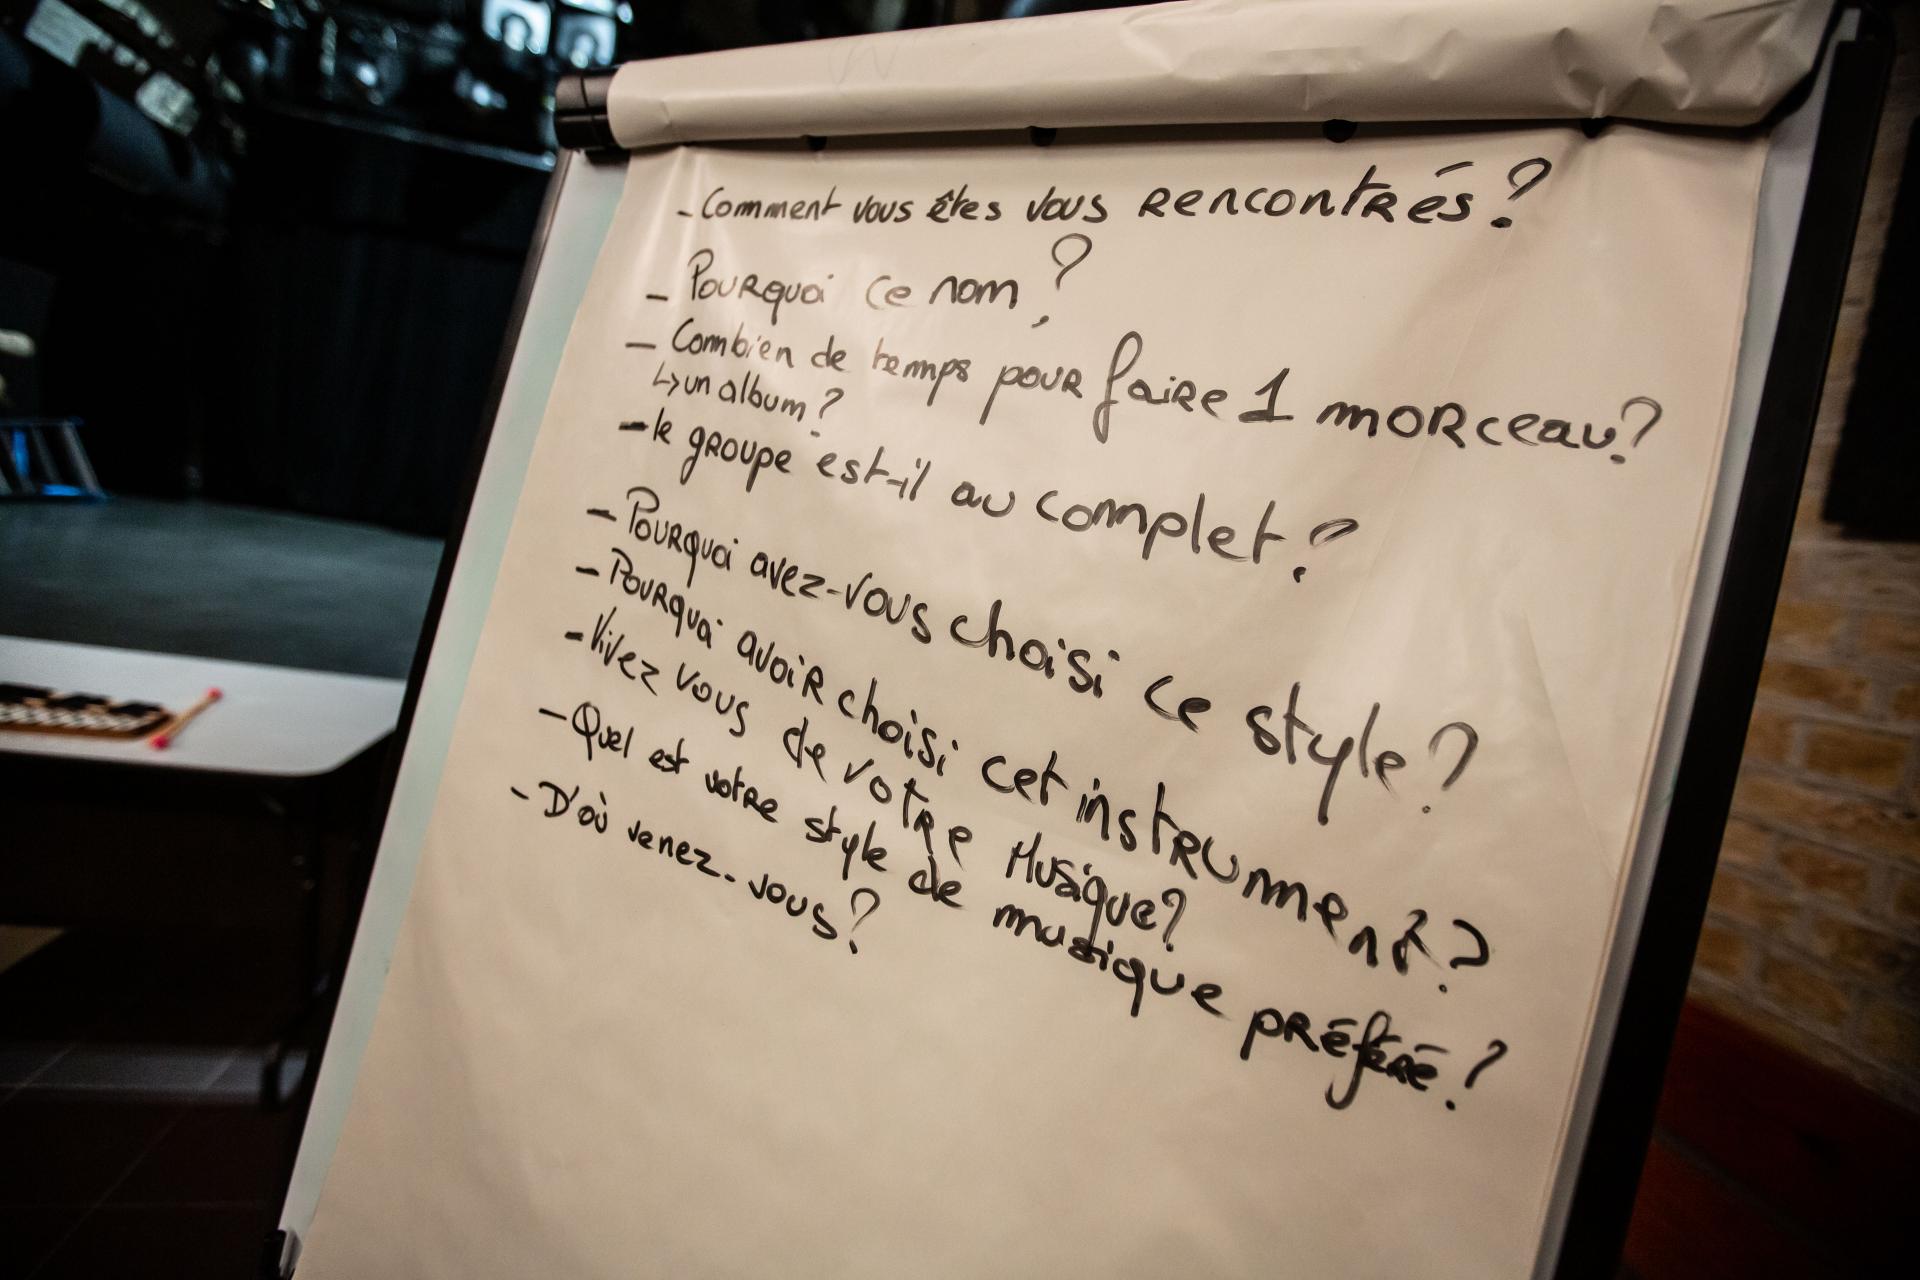 - Comment vous êtes vous rencontrés?
- Pourquoi ce nom?
- Combien de temps pour faire 1 morceau?
↳ un album?
- le groupe est-il au complet?
- Pourquoi avez-vous choisi ce style?
- Pourquoi avoir choisi cet instrument?
- Vivez vous de votre Musique?
- Quel est votre style de musique préféré?
- D'où venez-vous?